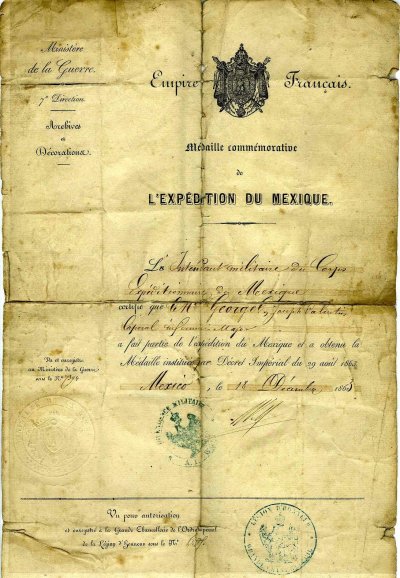 Ministère
de la Guerre.
7e Direction
Archives
et
Décorations.
Empire Français.
Médaille commémorative
de
L'EXPÉDITION DU MEXIQUE.
Le Intendant militaire du Corps
Expéditionnaire du Mexique
certifie que le Mr Georget, Joseph Valentin
Caporal
a fait partie de l'expédition du Mexique et a obtenu la
Médaille instituée par Décret Impérial du 29 août 1863.
Mexico, le 18 Décembre 1863
Vu et enregistré
au Ministère de la Guerre
sous le No
INTENDANCE MILITAIRE
Vu pour autorisation
et enregistré à la Grande Chancellerie de l'Ordre Impérial
de la Légion d'Honneur sous le No
LEGION D'HONNEUR